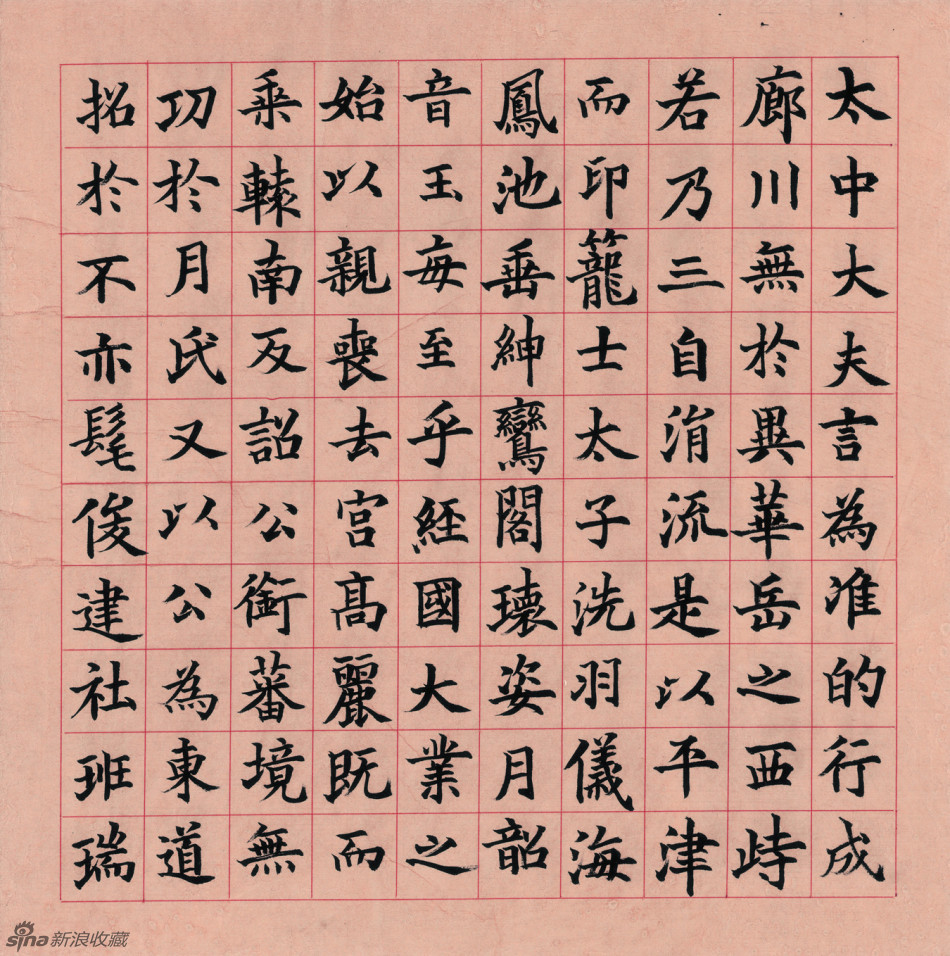 太中大夫言為准的行成
廊川無於異華岳之西峙
若乃三自涓流是以平津
而印籠士太子洗羽儀海
鳳池垂紳鸞閣瓌姿月韶
音王每至乎經國大業之
始以親喪去宮高麗既而
乘轅南反詔公銜蕃境無
功於月氏又以公為東道
招於不亦髦俊建社班瑞
sina新浪收藏